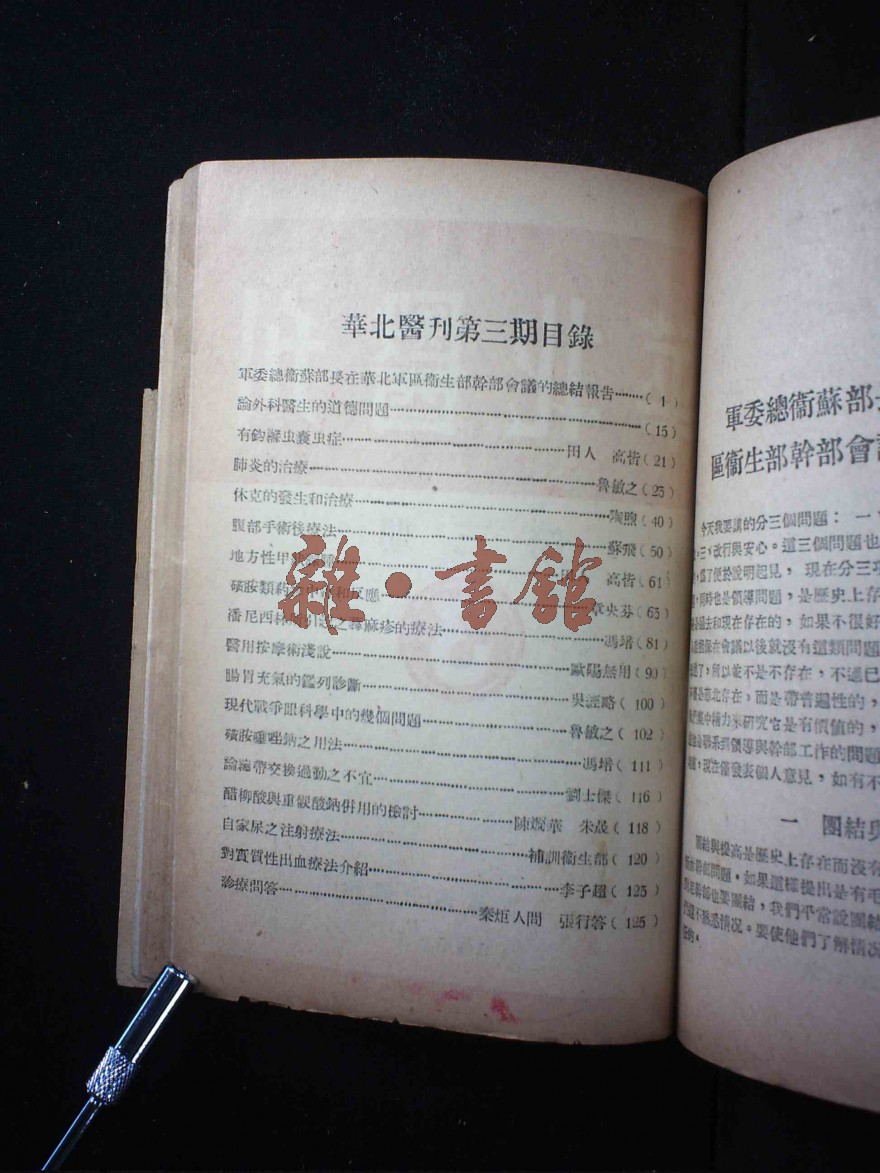 華北醫刊第三期目錄
軍委總衞蘇部長在華北軍區衞生部幹部會議的總結報告………( 1 )
論外科醫生的道德問題………(15)
有鈎縧虫囊虫症………田人 高皆(21)
肺炎的治療………魯敏之(25)
休克的發生和治療………陶煦(40)
腹部手術後療法………蘇飛(50)
地方性甲 高皆(61)
磺胺類 反應………章央芬(65)
潘尼西林 引起之蕁麻疹的療法………馮瑃(81)
醫用按摩術淺說………歐陽無用(90)
腸胃充氣的鑑列診斷………吳 略(100)
現代戰爭眼科學中的幾個問題………魯敏之(102)
磺胺 唑鈉之用法………馮瑃(111)
論繃帶交換過勤之不宜………劉士傑(116)
醋柳酸與重碳酸鈉併用的檢討………陳 華 朱晟(118)
自家尿之注射療法………補訓衞生部(120)
對實質性出血療法介紹………李子超(125)
診療問答………秦炬人問 張行答(125)
雜·書館
軍委總衞蘇部長
區衞生部幹部會
今天我要講的分三個問題：一
三，改行與安心。這三個問題也
爲了便於說明起見，現在分三項
同時也是領導問題，是歷史上存
過去和現在存在的，如果不很好
保在會議以後就沒有這類問題
了，所以能不是不存在，不過已
是華北存在，而是帶普遍性的，
集中精力來研究它是有價值的，
聯系到領導與幹部工作的問題
題，現在僅發表個人意見，如有不
一 團結與
團結與提高是歷史上存在而沒有
幹部問題。如果這樣提出是有毛
幹部也要團結，我們平常說團結
不熟悉情况。要使他們了解情况
的。